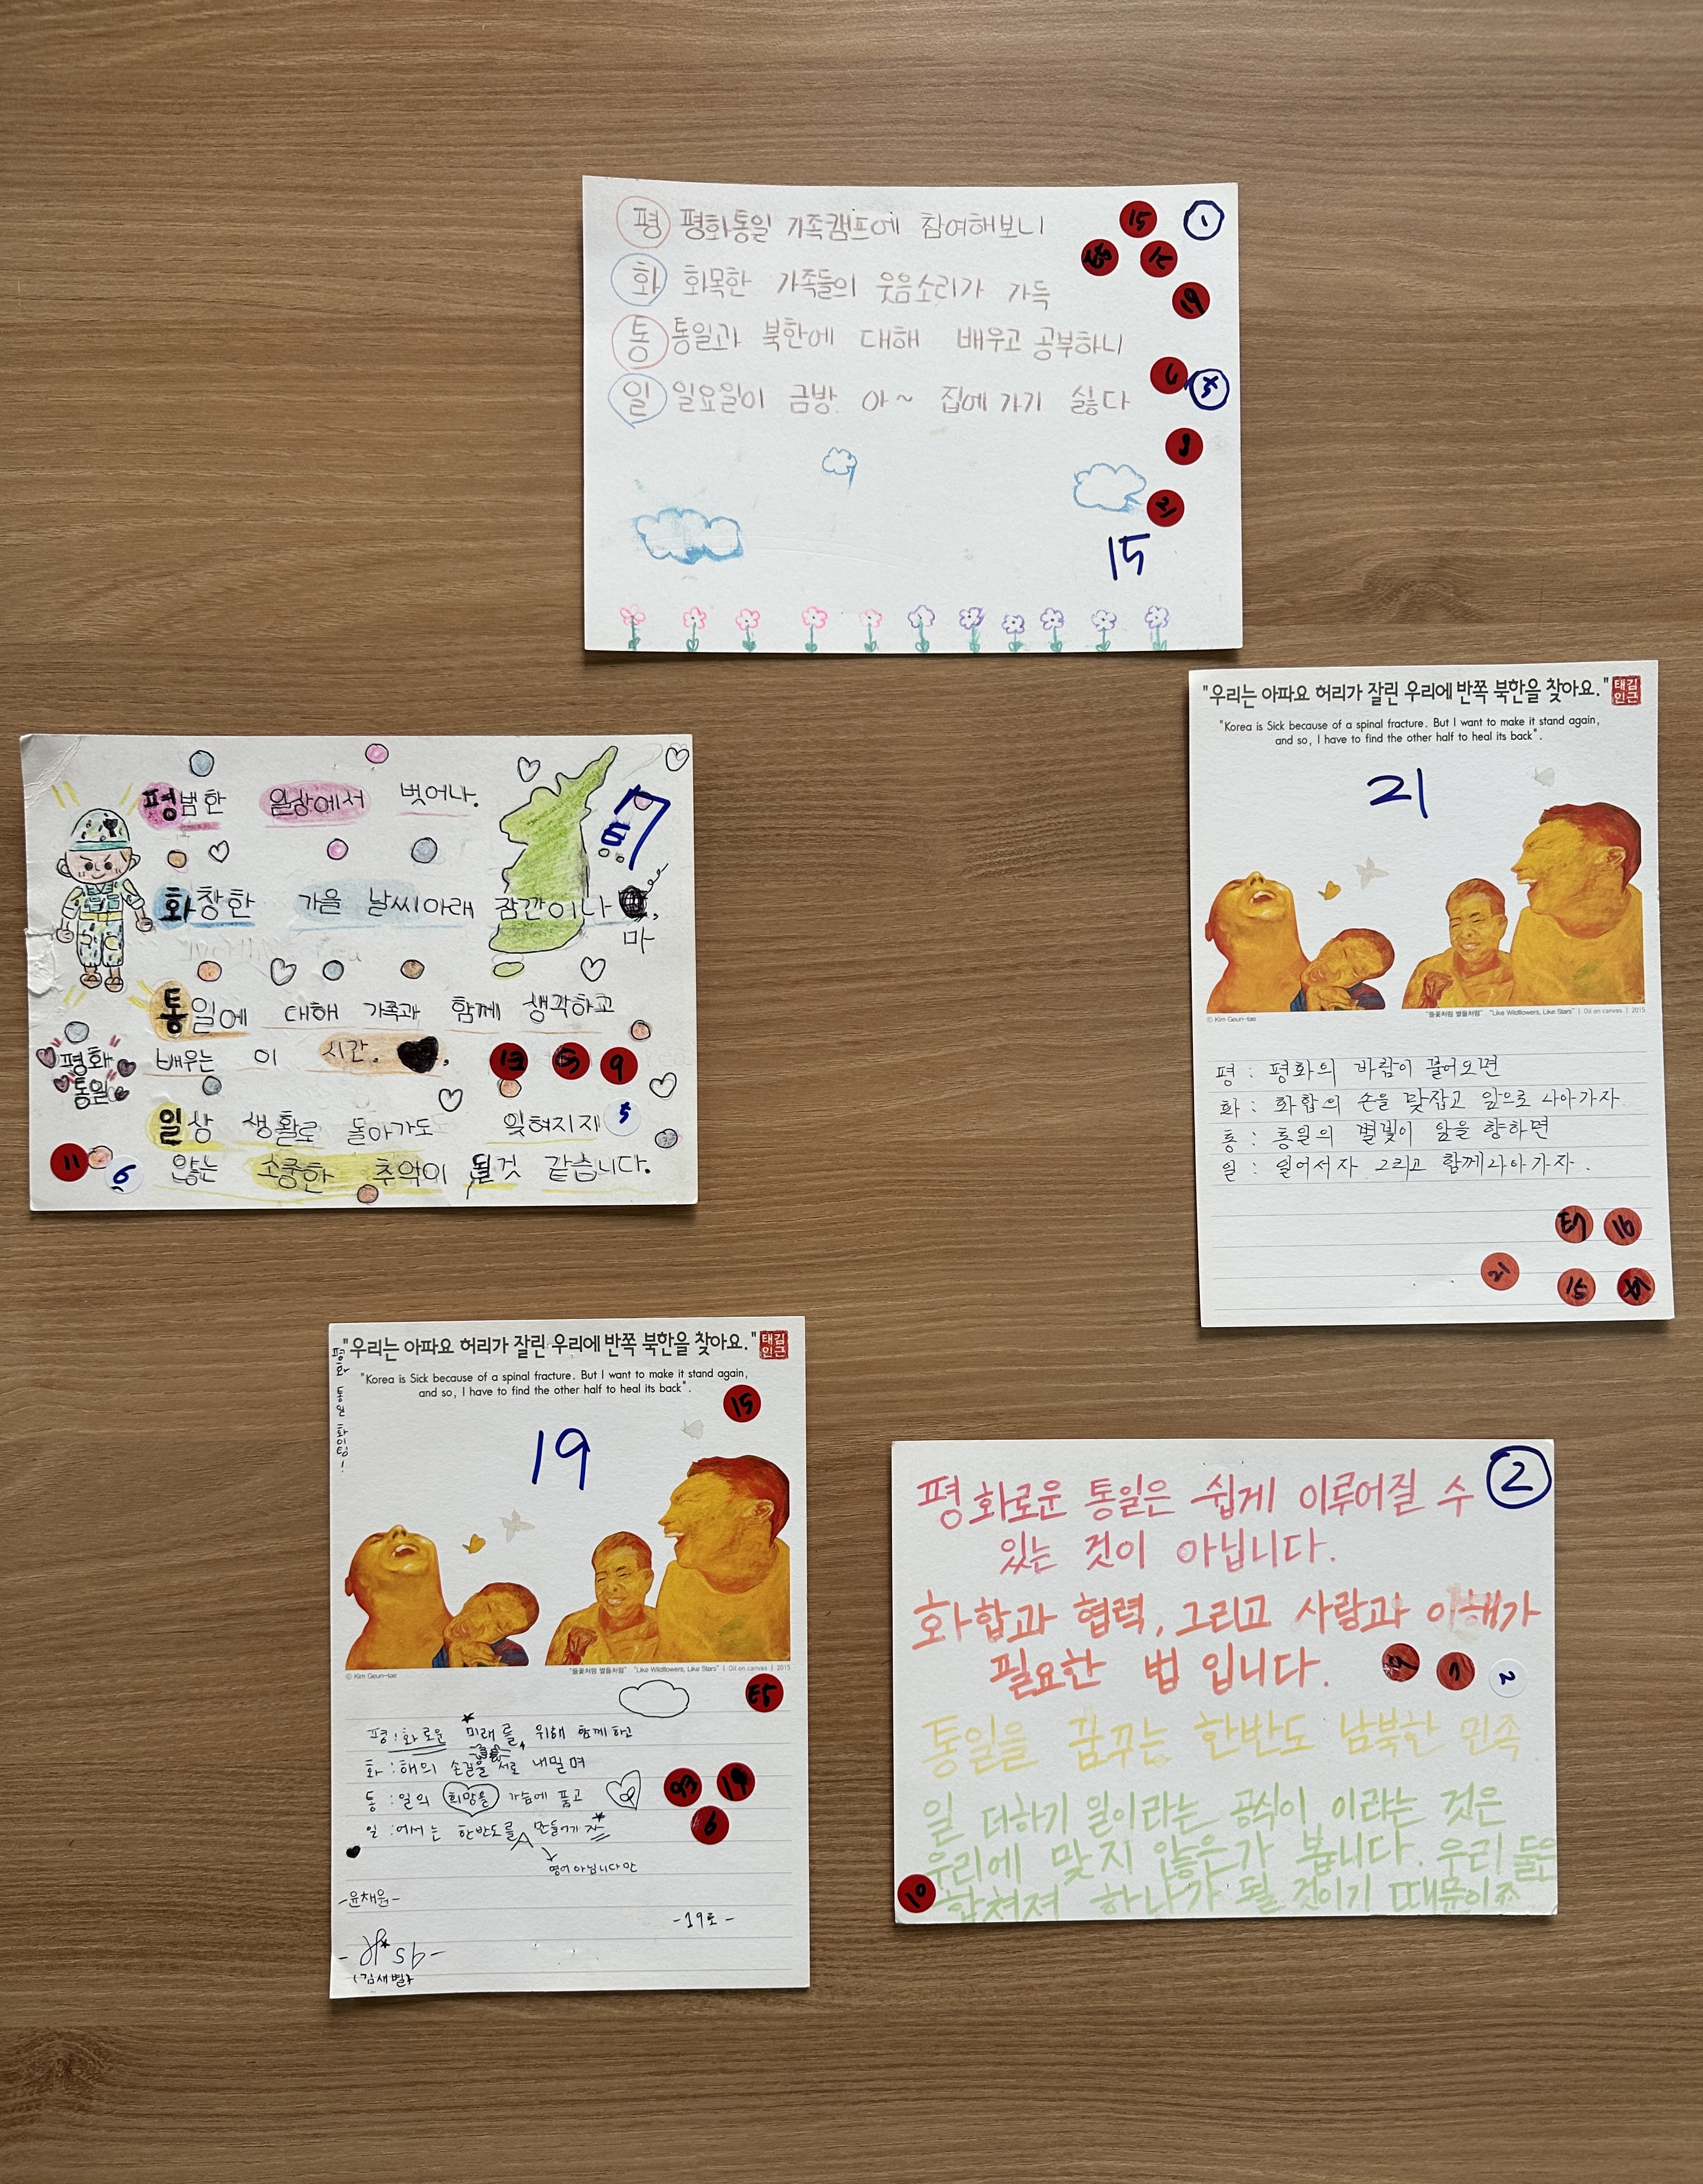 평 평화통일 가족캠프에 참여해보니
화 화목한 가족들의 웃음소리가 가득
통 통일과 북한에 대해 배우고 공부하니
일 일요일이 금방 아~ 집에 가기 싫다
15
1
19
15
평범한 일상에서 벗어나.
화창한 가을 날씨아래 잠깐이나
마
통일에 대해 가족과 함께 생각하고
배우는 이 시간.
평화
통일
일상 생활로 돌아가도 잊혀지지
않는 소중한 추억이 될것 같습니다.
9
5
11
6
"우리는 아파요 허리가 잘린 우리에 반쪽 북한을 찾아요."
태김
인근
"Korea is Sick because of a spinal fracture. But I want to make it stand again,
and so, I have to find the other half to heal its back".
21
© Kim Geun-tae
"들꽃처럼 별들처럼" "Like Wildflowers, Like Stars" | Oil on canvas | 2015
평 : 평화의 바람이 불어오면
화 : 화합의 손을 맞잡고 앞으로 나아가자.
통 : 통일의 별빛이 앞을 향하면
일 : 일어서자 그리고 함께나아가자.
16
21
15
"우리는 아파요 허리가 잘린 우리에 반쪽 북한을 찾아요."
태김
인근
"Korea is Sick because of a spinal fracture. But I want to make it stand again,
and so, I have to find the other half to heal its back".
평화 통일 화이팅!
15
19
© Kim Geun-tae
"들꽃처럼 별들처럼" "Like Wildflowers, Like Stars" | Oil on canvas | 2015
평 : 화로운 미래를 위해 함께하고
화 : 해의 손길을 서로 내밀며
통 : 일의 희망을 가슴에 품고
일 : 어서는 한반도를 만들어가자
영어 아닙니다만
19
6
-윤채운-
-19조-
(김새별)
2
평화로운 통일은 쉽게 이루어질 수
있는 것이 아닙니다.
화합과 협력, 그리고 사랑과 이해가
필요한 법 입니다.
2
통일을 꿈꾸는 한반도 남북한 민족
일 더하기 일이라는 공식이 이라는 것은
우리에 맞지 않은가 봅니다. 우리 둘은
합쳐져 하나가 될 것이기 때문이죠
10